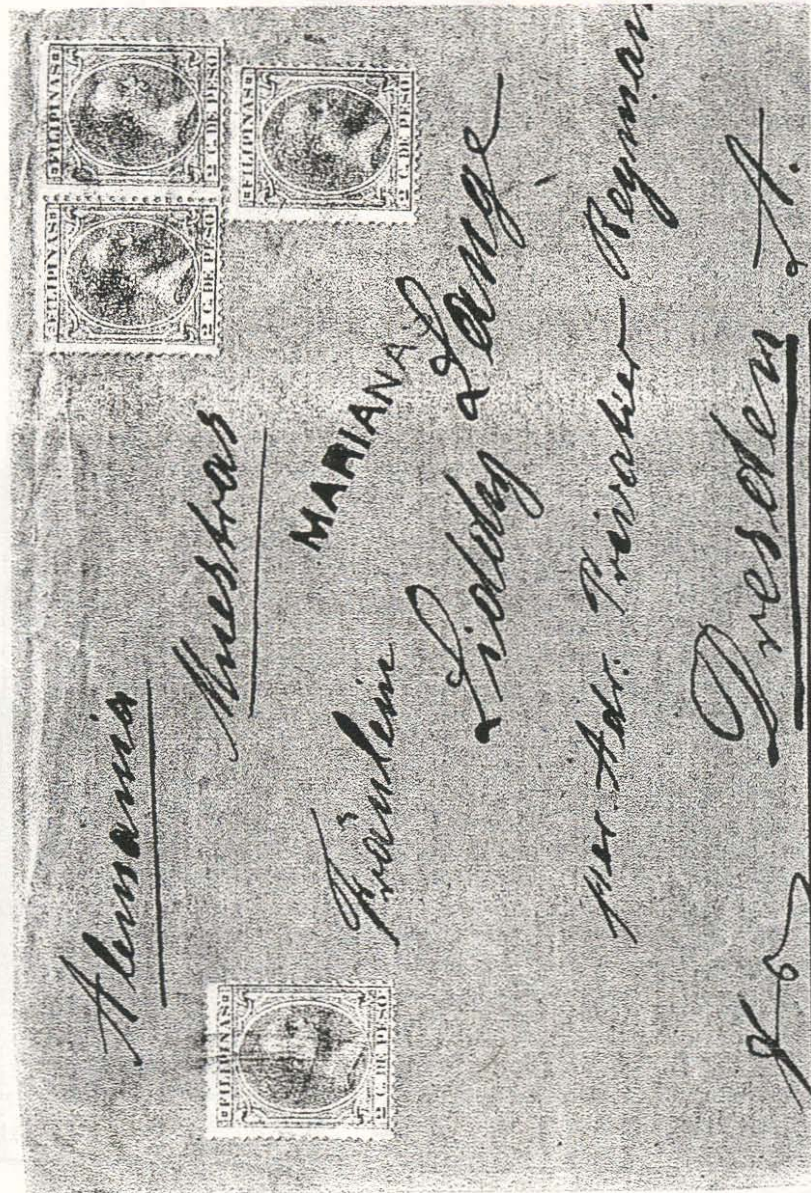 Alemania
Muestras
MARIANAS
Fräulein
Liddy Lange
per Adr. Privatier Reyman
Dresden A.
FILIPINAS
2 C. DE PESO
FILIPINAS
2 C. DE PESO
FILIPINAS
2 C. DE PESO
FILIPINAS
2 C. DE PESO